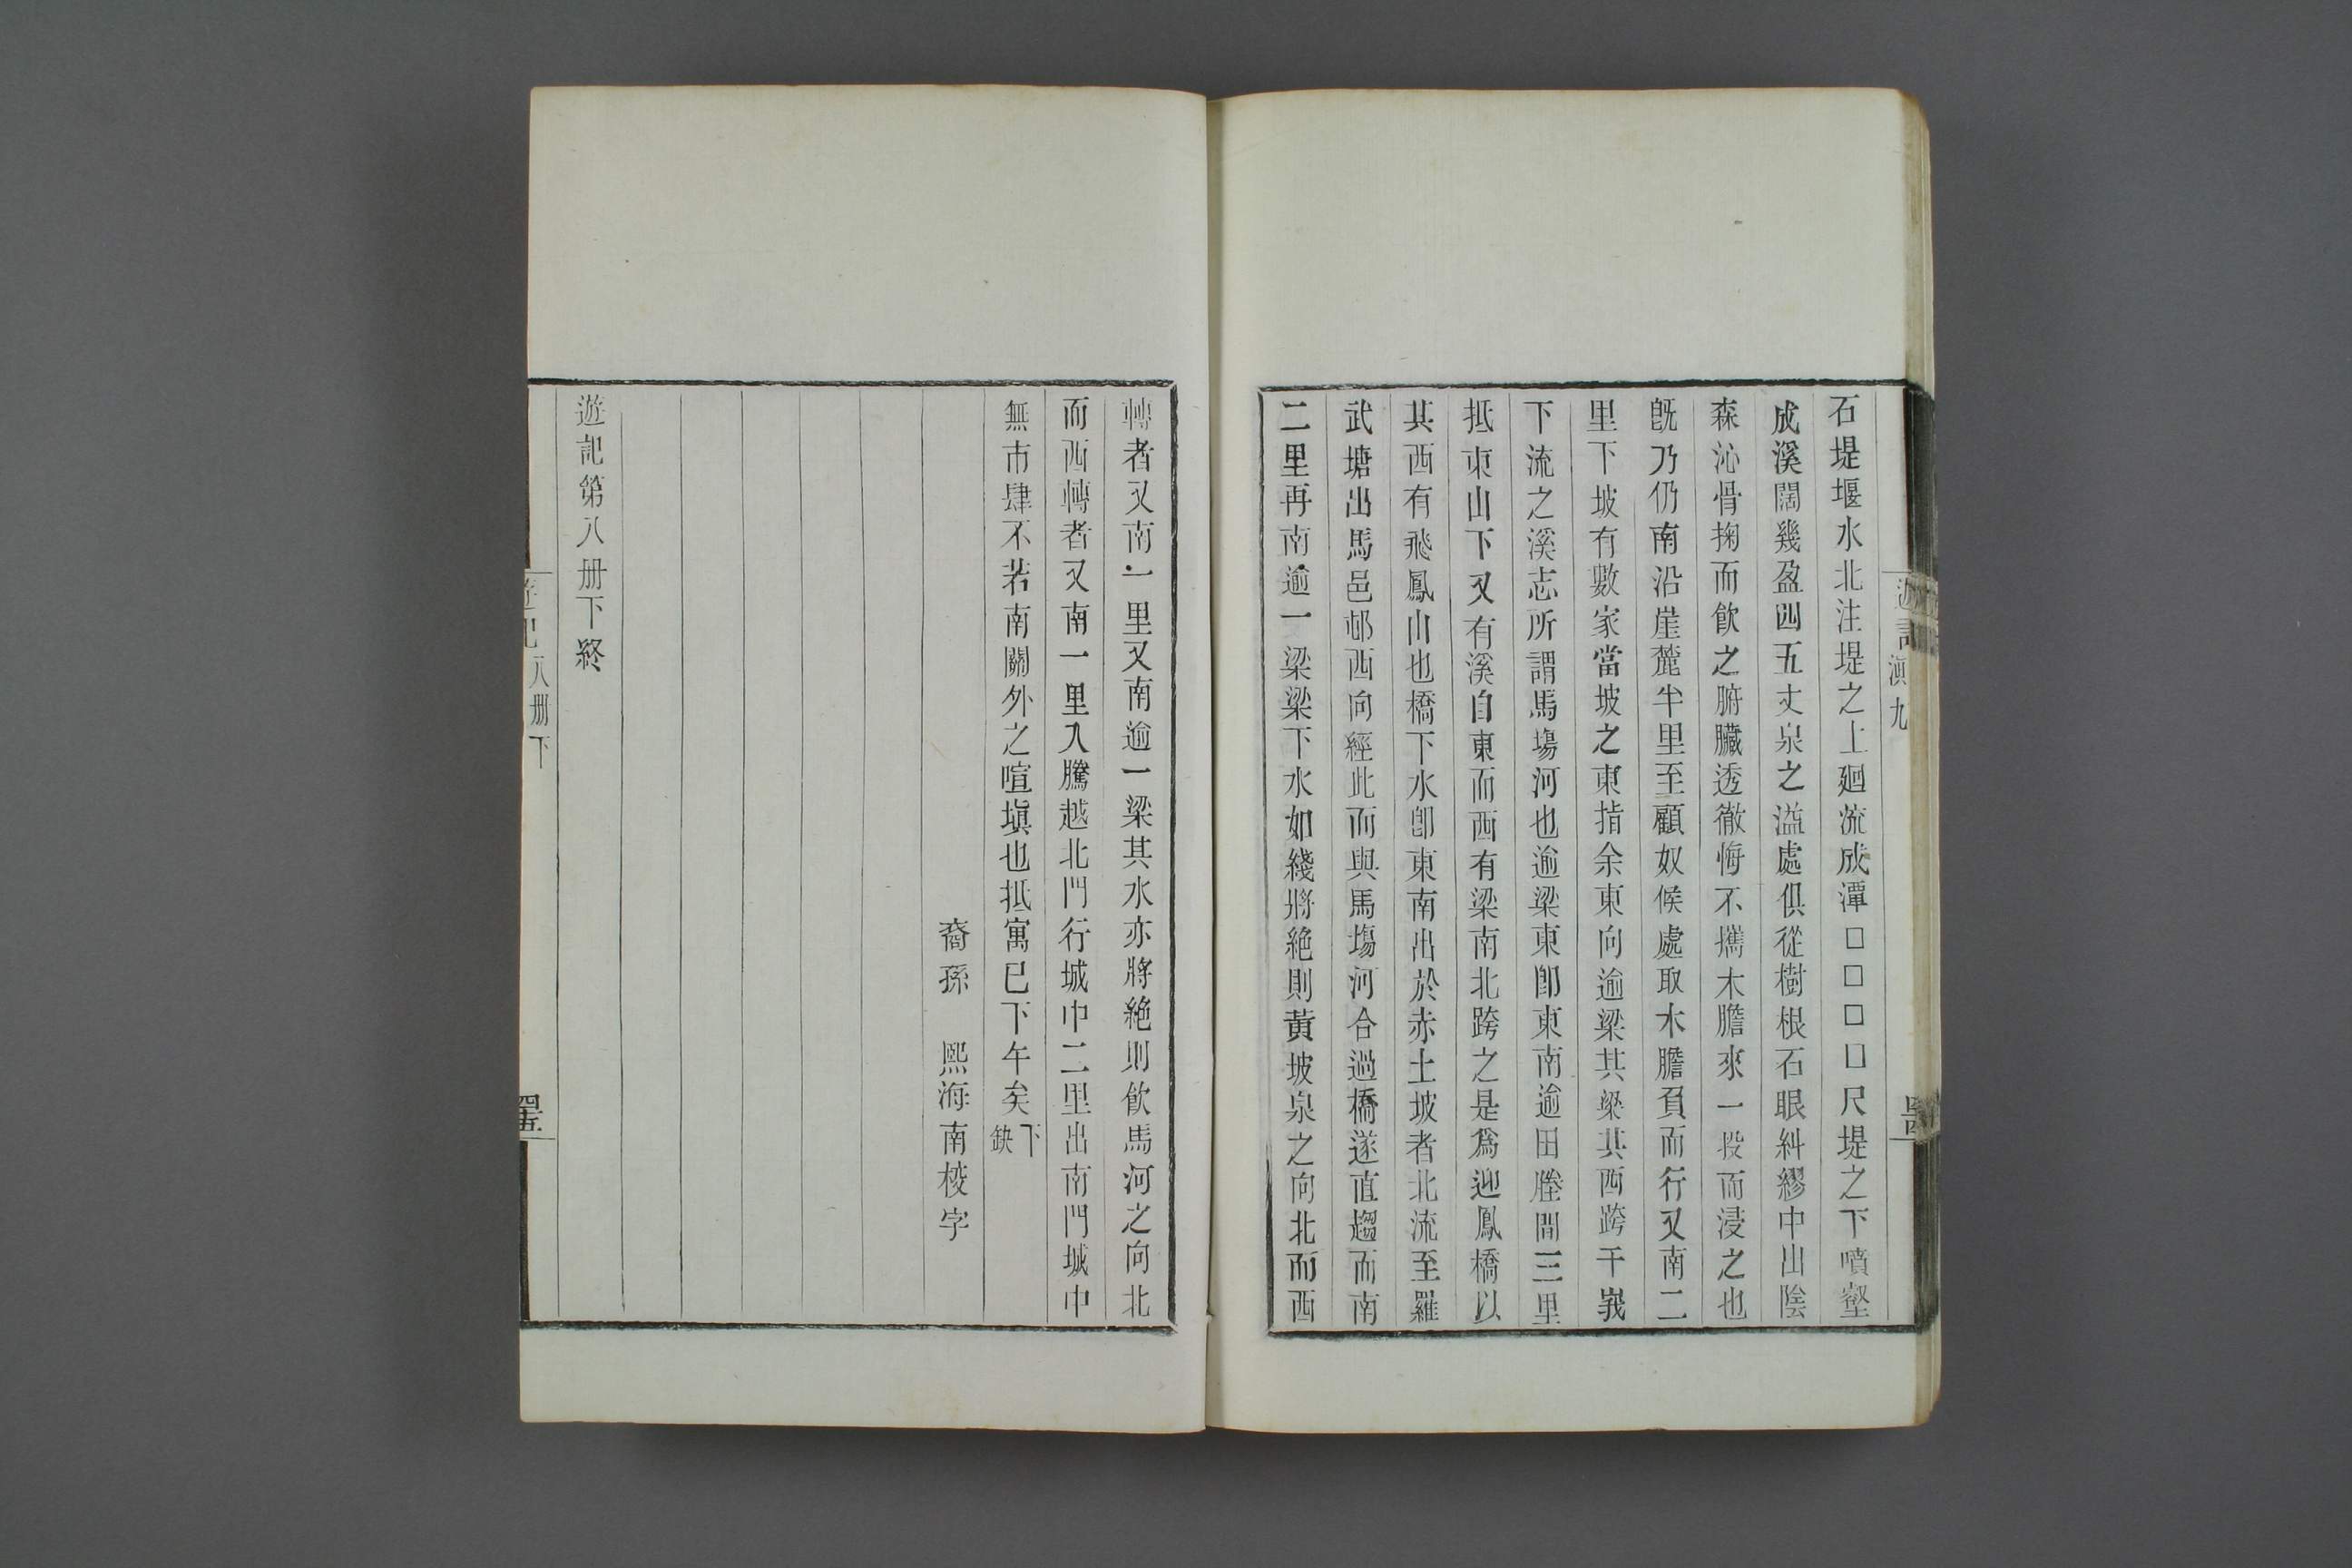 遊記滇九
石堤堰水北注堤之上廻流成潭□□□□尺堤之下噴壑
成溪闊幾盈四五丈泉之溢處俱從樹根石眼糾繆中出陰
森沁骨掬而飲之腑臟透徹悔不攜木膽來一投而浸之也
旣乃仍南沿崖麓半里至顧奴候處取木膽負而行又南二
里下坡有數家當坡之東指余東向逾梁其梁其西跨干峩
下流之溪志所謂馬塲河也逾梁東卽東南逾田塍間三里
抵東山下又有溪自東而西有梁南北跨之是爲迎鳳橋以
其西有飛鳳山也橋下水卽東南出於赤土坡者北流至羅
武塘出馬邑邨西向經此而與馬塲河合過橋遂直趨而南
二里再南逾一梁梁下水如綫將絶則黃坡泉之向北而西
轉者又南一里又南逾一梁其水亦將絶則飮馬河之向北
而西轉者又南一里入騰越北門行城中二里出南門城中
無市肆不若南關外之喧塡也抵寓已下午矣下缺
裔孫　熙海南棱字
遊記第八册下終
八册下